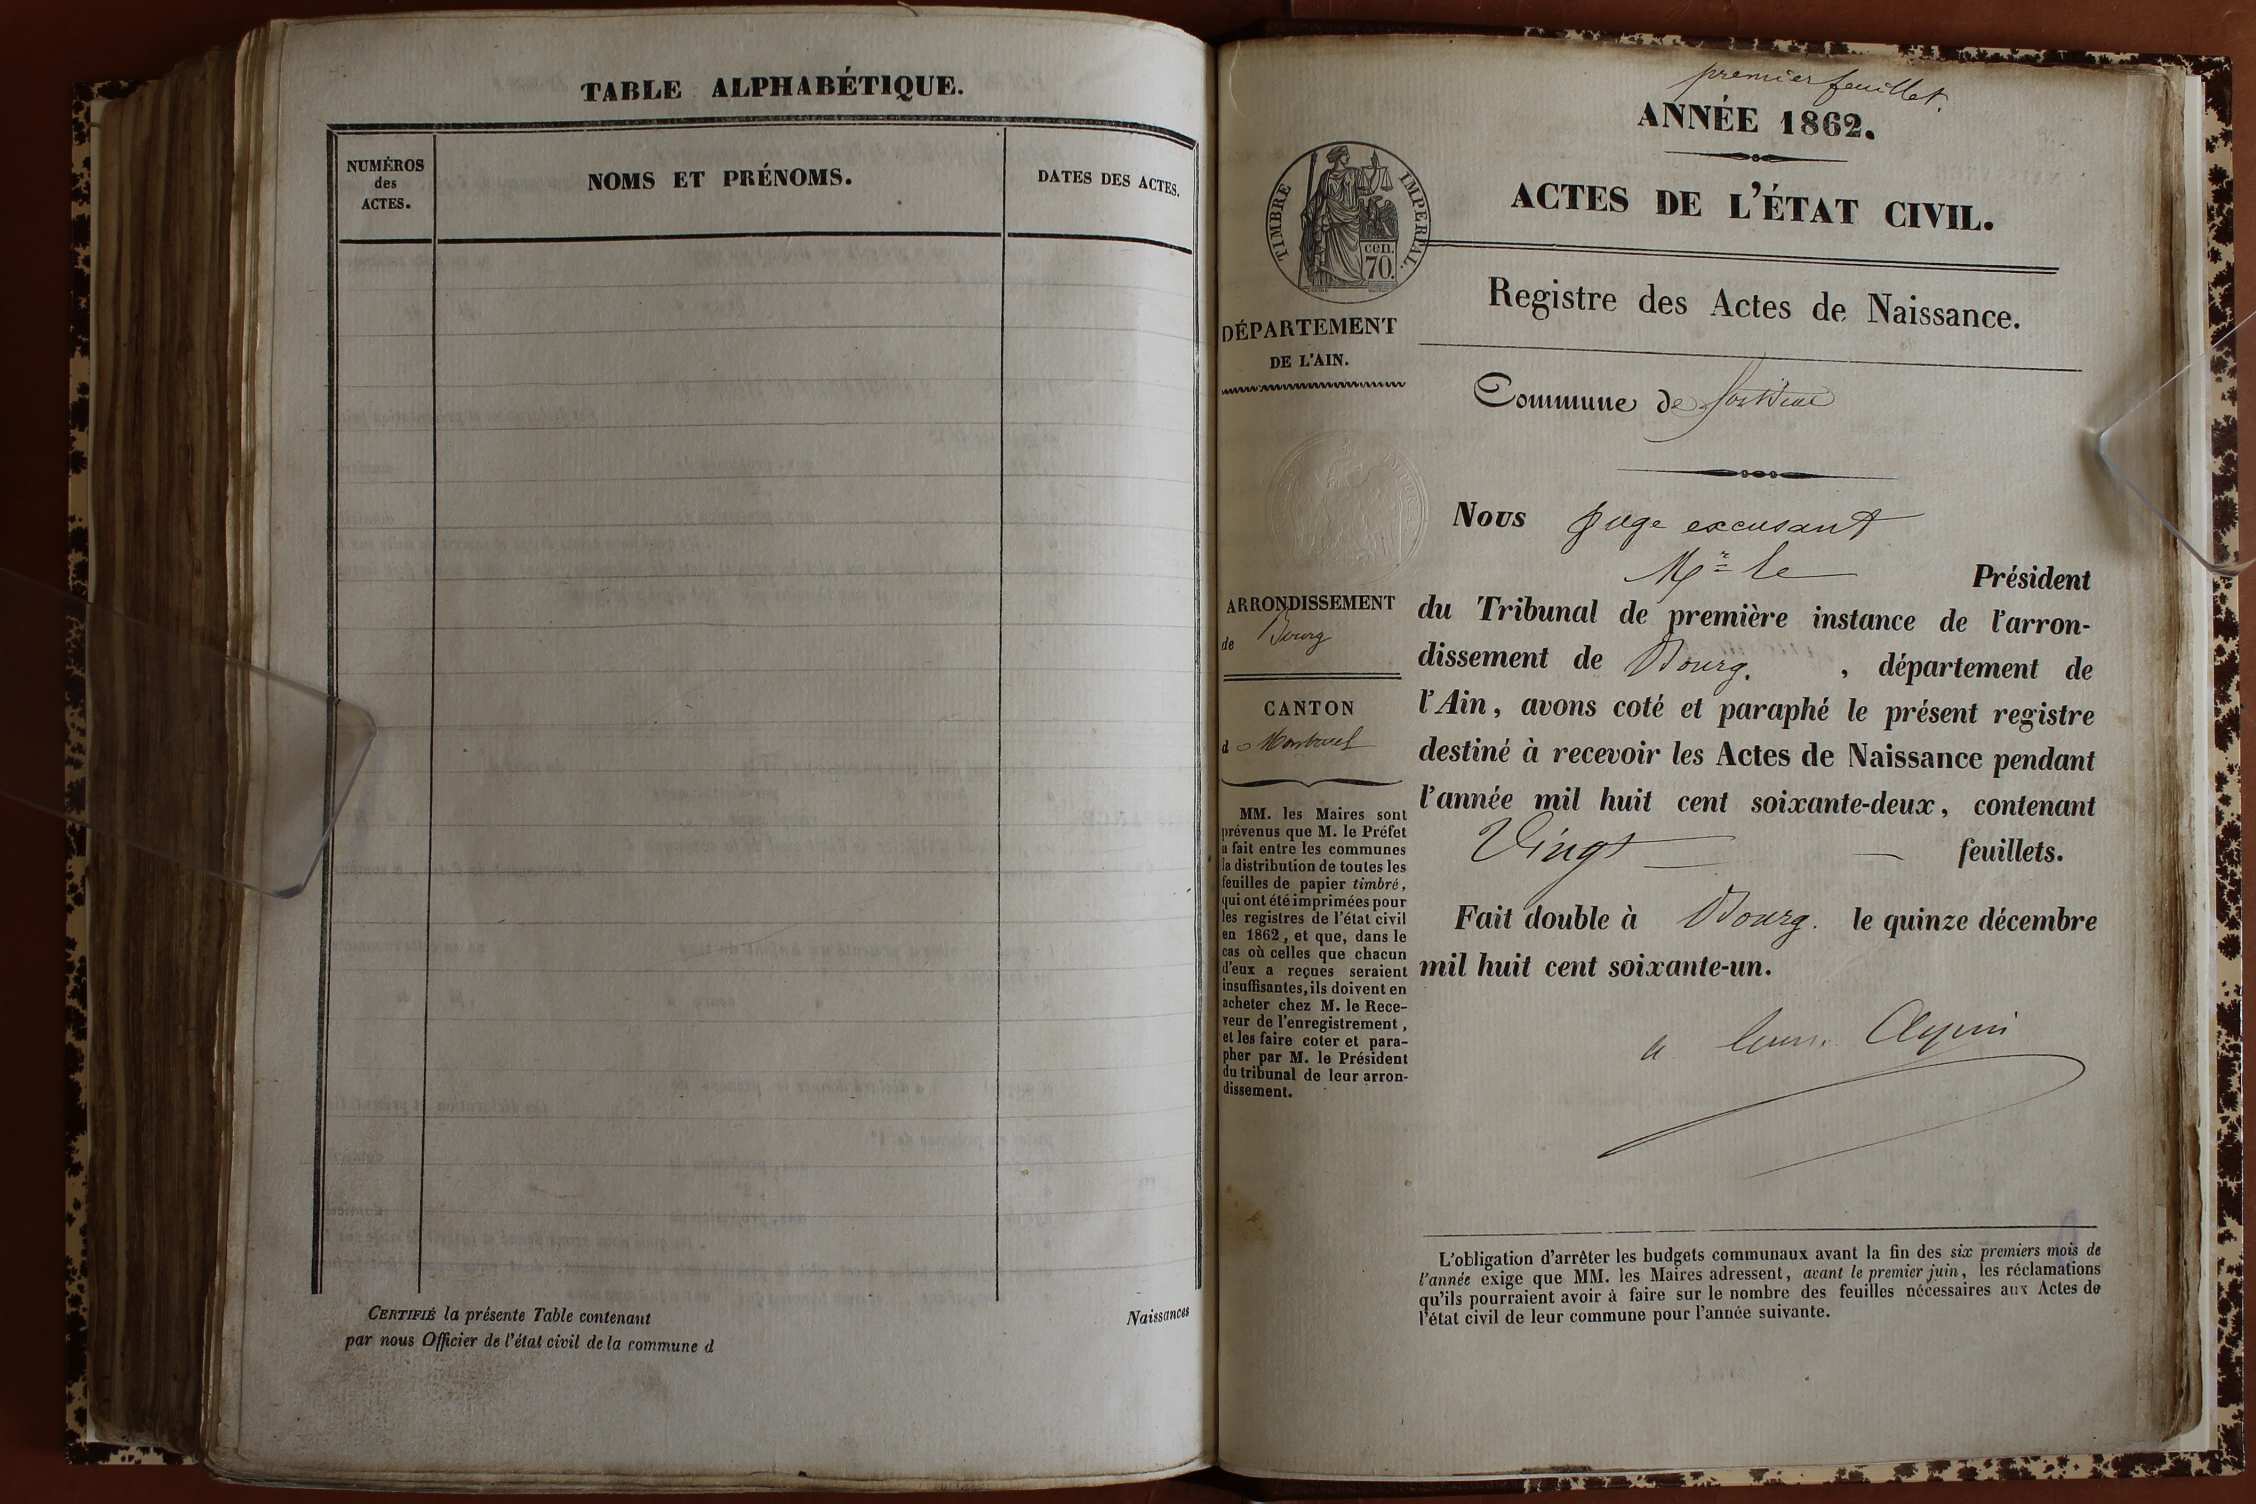 TABLE ALPHABÉTIQUE.
NUMÉROS
des
ACTES.
NOMS ET PRÉNOMS.
DATES DES ACTES.
CERTIFIÉ la présente Table contenant Naissances
par nous Officier de l'état civil de la commune d
premier feuillet.
ANNÉE 1862.
ACTES DE L'ÉTAT CIVIL.
TIMBRE IMPERIAL.
cen.
70.
Registre des Actes de Naissance.
DÉPARTEMENT
DE L'AIN.
Commune de
ARRONDISSEMENT
de Bourg
CANTON
de Montrevel
MM. les Maires sont
prévenus que M. le Préfet
a fait entre les communes
la distribution de toutes les
feuilles de papier timbré,
qui ont été imprimées pour
les registres de l'état civil
en 1862, et que, dans le
cas où celles que chacun
d'eux a reçues seraient
insuffisantes, ils doivent en
acheter chez M. le Rece-
veur de l'enregistrement,
et les faire coter et para-
pher par M. le Président
du tribunal de leur arron-
dissement.
Nous juge excusant
Mr le Président
du Tribunal de première instance de l'arron-
dissement de Bourg. , département de
l'Ain, avons coté et paraphé le présent registre
destiné à recevoir les Actes de Naissance pendant
l'année mil huit cent soixante-deux, contenant
Vingt — — feuillets.
Fait double à Bourg. le quinze décembre
mil huit cent soixante-un.
L'obligation d'arrêter les budgets communaux avant la fin des six premiers mois de
l'année exige que MM. les Maires adressent, avant le premier juin, les réclamations
qu'ils pourraient avoir à faire sur le nombre des feuilles nécessaires aux Actes de
l'état civil de leur commune pour l'année suivante.